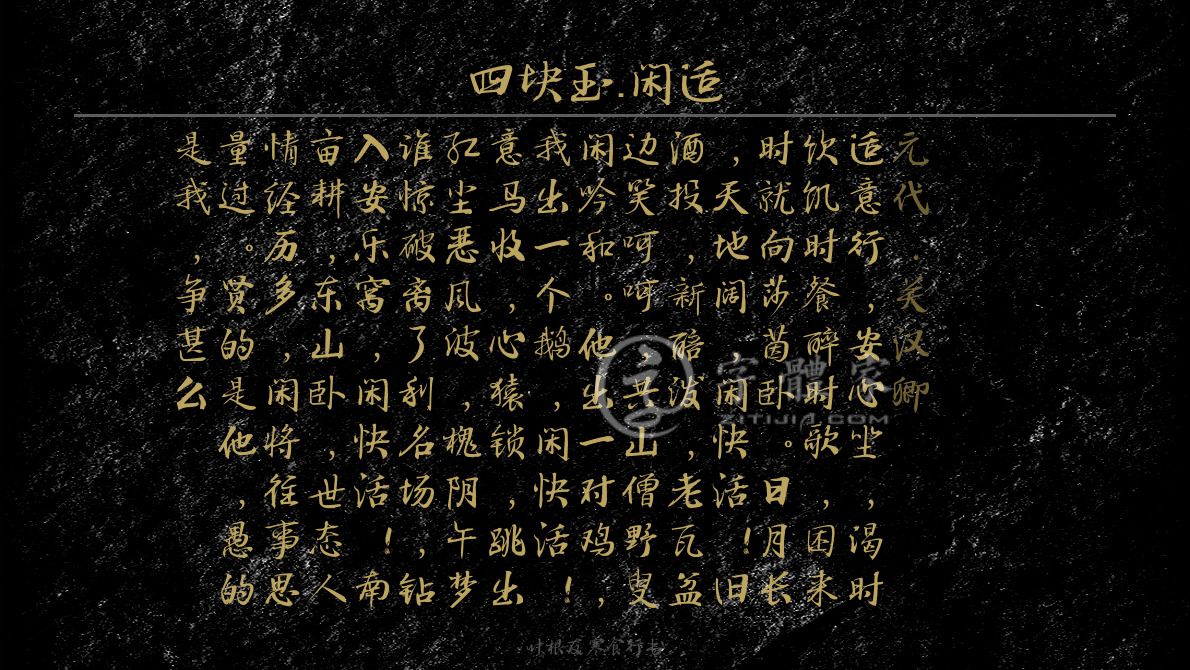 四块玉.闲适
元代.关汉卿
适意行,安心尘,渴时
饮饥时餐醉时歌,困来
时就向莎茵卧。日月长
,天地阔,闲快活!旧
酒投,新醅泼,老瓦盆
边笑呵呵,共山僧野叟
闲吟和。他出一对鸡,
我出一个鹅,闲快活!
意马收,心猿锁,跳出
红尘恶风波,槐阴午梦
谁惊破离了利名场,钻
入安乐窝,闲快活!南
亩耕,东山卧,世态人
情经历多,闲将往事思
量过。贤的是他,愚的
是我,争甚么
字體家
ZITIJIA.COM
叶根友寒食行书